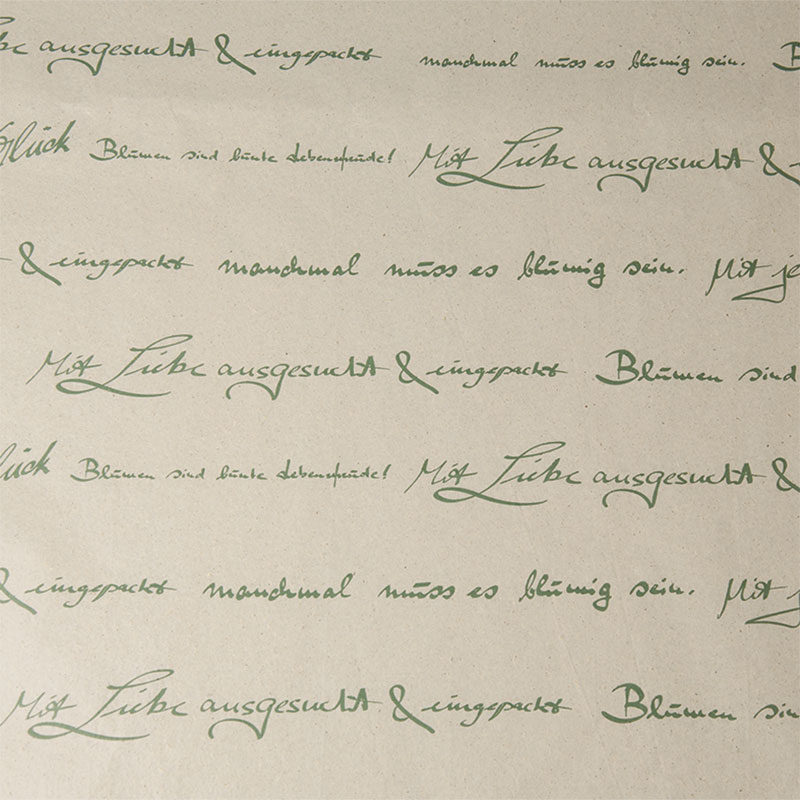 ausgesucht & eingepackt manchmal muss es blumig sein. B
Glück Blumen sind bunte Lebensfreude! Mit Liebe ausgesucht &
& eingepackt manchmal muss es blumig sein. Mit je
Mit Liebe ausgesucht & eingepackt Blumen sind
lück Blumen sind bunte Lebensfreude! Mit Liebe ausgesucht &
& eingepackt manchmal muss es blumig sein. Mit j
Mit Liebe ausgesucht & eingepackt Blumen sin